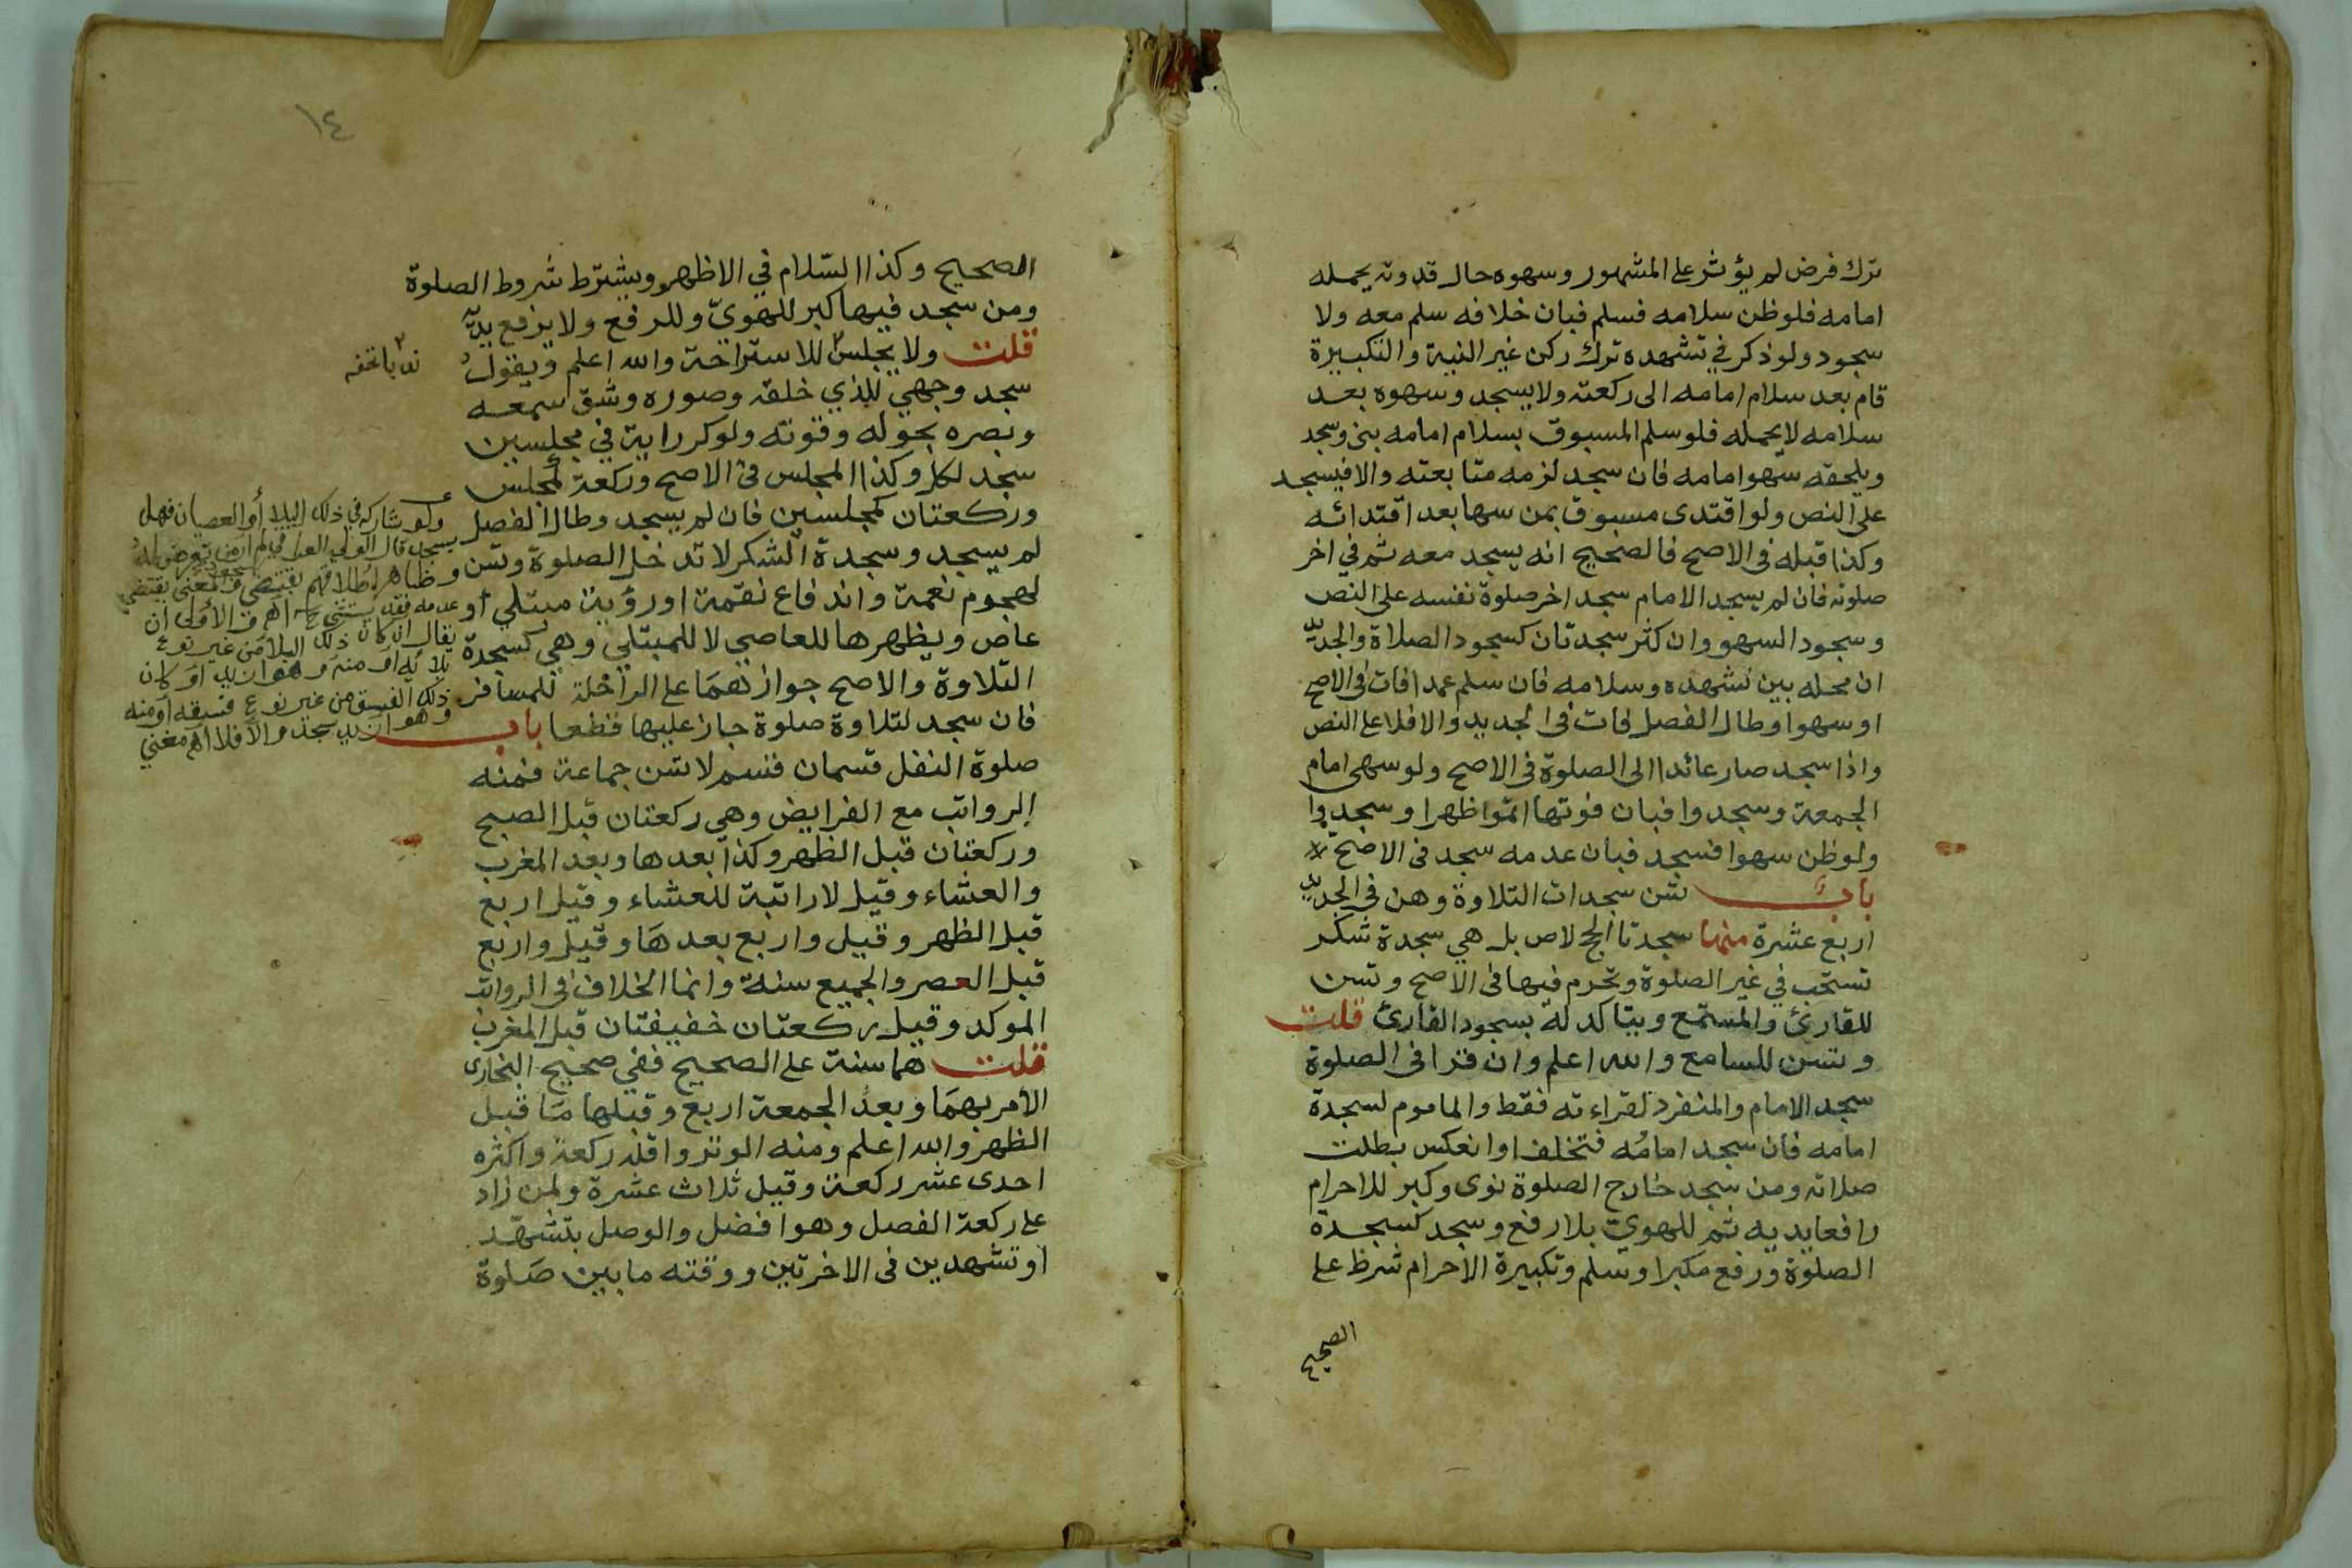 ترك فرض لم يؤثر على المشهور وسهوه حال قدوته يحمله
امامه فلو ظن سلامه فسلم فبان خلافه سلم معه ولا
سجود ولو ذكر في تشهده ترك ركن غير النية والتكبيرة
قام بعد سلام امامه الى ركعته ولا يسجد وسهوه بعد
سلامه لا يحمله فلو سلم المسبوق بسلام امامه بنى وسجد
ويلحقه سهو امامه فان سجد لزمه متابعته والا فيسجد
على النص ولو اقتدى مسبوق بمن سها بعد اقتدائه
وكذا قبله فى الاصح فالصحيح انه يسجد معه ثم في اخر
صلوته فان لم يسجد الامام سجد اخر صلوة نفسه على النص
وسجود السهو وان كثر سجدتان كسجود الصلاة والجديد
ان محله بين تشهده وسلامه فان سلم عمدا فات فى الاصح
او سهوا وطال الفصل فات فى الجديد والا فلا على النص
واذا سجد صار عائدا الى الصلوة فى الاصح ولو سهى امام
الجمعة وسجدوا فبان فوتها اتموا ظهرا وسجدوا
ولو ظن سهوا فسجد فبان عدمه سجد فى الاصح
باب تسن سجدات التلاوة وهن فى الجديد
اربع عشرة منها سجدتا الحج لا ص بل هي سجدة شكر
تستحب في غير الصلوة وتحرم فيها فى الاصح وتسن
للقارئ والمستمع ويتاكد له بسجود القارئ قلت
وتسن للسامع والله اعلم وان قرا فى الصلوة
سجد الامام والمنفرد لقراءته فقط والماموم لسجدة
امامه فان سجد امامه فتخلف او انعكس بطلت
صلاته ومن سجد خارج الصلوة نوى وكبر للاحرام
رافعا يديه ثم للهوي بلا رفع وسجد كسجدة
الصلوة ورفع مكبرا وسلم وتكبيرة الاحرام شرط على
الصحيح
١٤
الصحيح وكذا السلام في الاظهر ويشترط شروط الصلوة
ومن سجد فيها كبر للهوي وللرفع ولا يرفع يديه
قلت ولا يجلس للاستراحة والله اعلم ويقول
ندبا تحفه
سجد وجهي للذي خلقه وصوره وشق سمعه
وبصره بحوله وقوته ولو كرر اية في مجلسين
سجد لكل وكذا المجلس فى الاصح وركعة كمجلس
وركعتان كمجلسين فان لم يسجد وطال الفصل
لم يسجد وسجدة الشكر لا تدخل الصلوة وتسن
لهجوم نعمة واندفاع نقمة او رؤية مبتلي او
عاص ويظهرها للعاصي لا للمبتلي وهي كسجدة
التلاوة والاصح جوازهما على الراحلة للمسافر
فان سجد لتلاوة صلوة جاز عليها قطعا باب
صلوة النفل قسمان قسم لا تسن جماعة فمنه
الرواتب مع الفرايض وهي ركعتان قبل الصبح
وركعتان قبل الظهر وكذا بعدها وبعد المغرب
والعشاء وقيل لا راتبة للعشاء وقيل اربع
قبل الظهر وقيل واربع بعدها وقيل واربع
قبل العصر والجميع سنة وانما الخلاف فى الرواتب
الموكد وقيل ركعتان خفيفتان قبل المغرب
قلت هما سنة على الصحيح ففي صحيح البخارى
الامر بهما وبعد الجمعة اربع وقبلها ما قبل
الظهر والله اعلم ومنه الوتر واقله ركعة واكثره
احدى عشر ركعة وقيل ثلاث عشرة ولمن زاد
على ركعة الفصل وهو افضل والوصل بتشهد
او تشهدين فى الاخرتين ووقته ما بين صلوة
ولو شاركه في ذلك البلا أو العصيان فهل
يسجد قال الولي العراقي لم ار من تعرض له
وظاهر اطلاقهم يقتضي السجود والمعنى يقتضي
عدمه فقد يستثنى اهـ والأولى ان
يقال ان كان ذلك البلا من غير نوع
بلائه او منه وهو ازيد او كان
ذلك الفسق من غير نوع فسقه او منه
وهو ازيد سجد والا فلا اهـ مغني